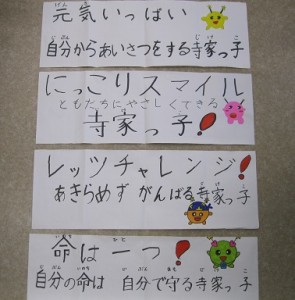 元気いっぱい
自分からあいさつをする寺家っ子
にっこりスマイル
ともだちにやさしくできる
寺家っ子!
レッツチャレンジ!
あきらめず がんばる寺家っ子
命は一つ!
自分の命は 自分で守る寺家っ子